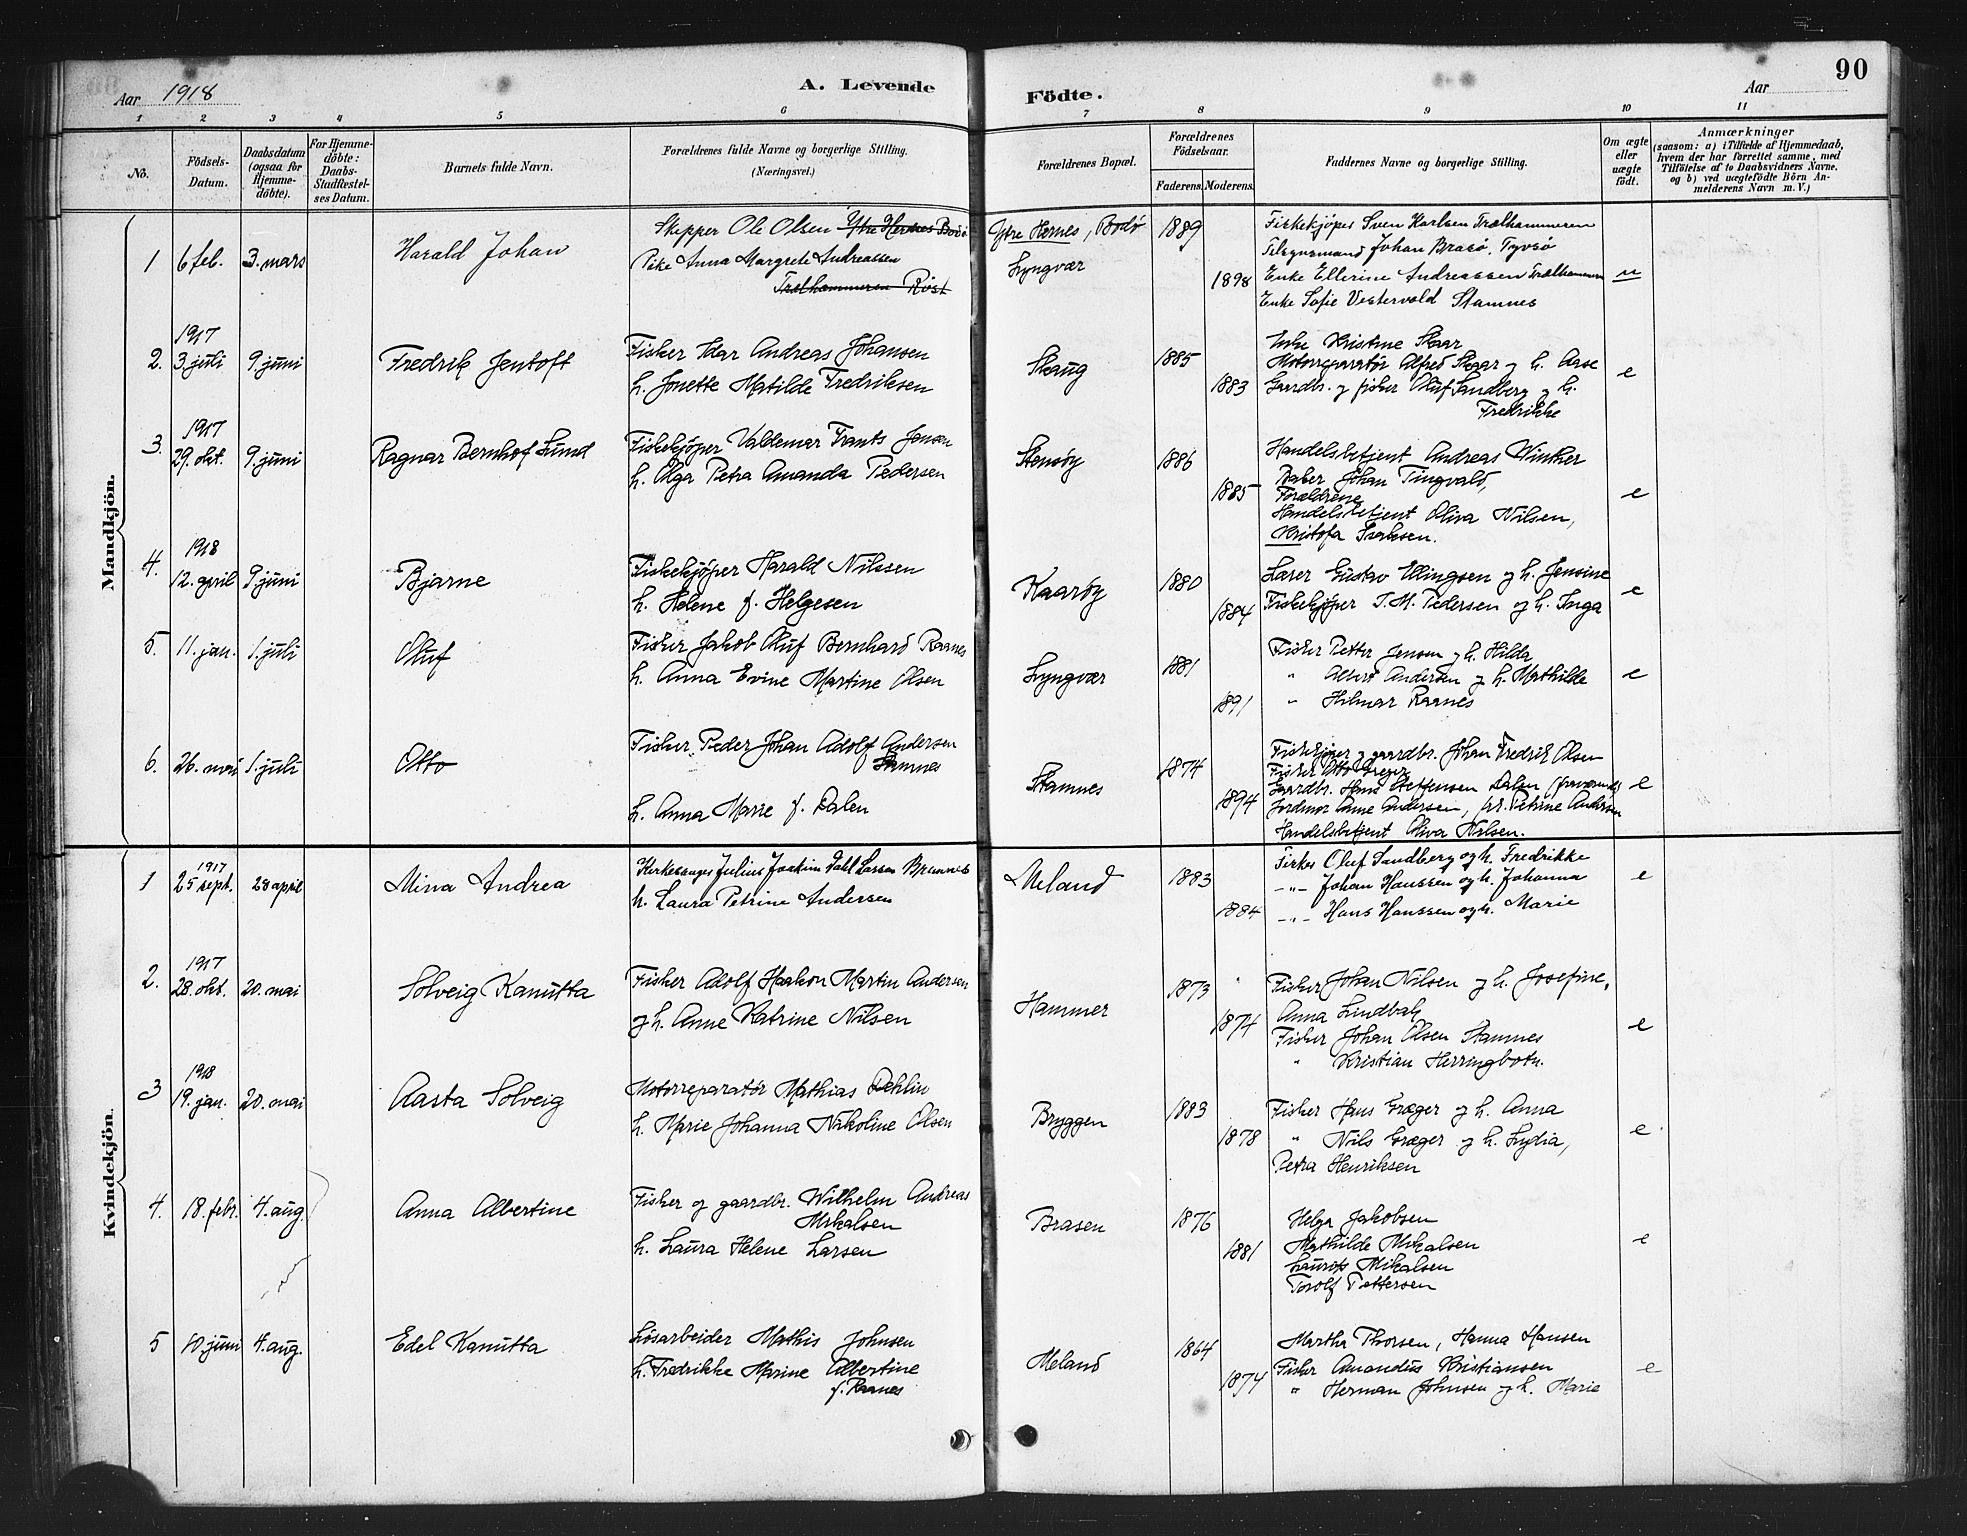 Aar 1918
A. Levende
Födte.
Aar
90
1 2 3 4 5 6 7 8 9 10 11
No.
Födsels-Datum.
Daabsdatum (ogsaa for Hjemmedöbte).
For Hjemmedöbte: Daabs-Stadfæstelses Datum.
Barnets fulde Navn.
Forældrenes fulde Navne og borgerlige Stilling. (Næringsvei.)
Forældrenes Bopæl.
Forældrenes Födselsaar.
Faderens. Moderens.
Faddernes Navne og borgerlige Stilling.
Om ægte eller uægte födt.
Anmærkninger
(saasom: a) i Tilfælde af Hjemmedaab, hvem der har forrettet samme, med Tilföielse af to Daabsvidners Navne, og b) ved uægtefödte Börn Anmelderens Navn m.V.)
Mandkjön.
1 6 feb. 3. mars Harald Johan
Skipper Ole Olsen Ytre Hernes Bodø
Pike Anna Margrete Andreassen
Trælhammeren Røst
Ytre Hernes, Bodø
Lyngvær
1889
1898
Fiskekjøper Sven Karlsen Trælhammeren
Johan Brasø, Tyvsø
Enke Ellerine Andreassen Trælhammeren
Enke Sofie Vestervold Stamnes
u
2. 1917 3. juli 9. juni Fredrik Jentoft
Fisker Idar Andreas Johansen
h. Jonette Matilde Fredriksen
Skaug
1885
1883
Enke Kristine Skaar
Motorreparatør Alfred Skaar og h. Aase
Gaardbr. og fisker Oluf Sandberg og h.
Fredrikke
e
3. 1917 29. okt. 9. juni Ragnar Bernhof Lund
Fiskekjøper Valdemar Frants Jensen
h. Olga Petra Amanda Pedersen
Stensøy
1886
1885
Handelsbetjent Andreas Winther
Johan Tingvald,
Forældrene
Handelsbetjent Oliva Nilsen,
Kristofa Isaksen.
e
4. 1918 12. april 9. juni Bjarne
Fiskekjøper Harald Nilssen
h. Helene f. Helgesen
Kaarøy
1880
1884
Lærer Gustav Ellingsen og h. Jensine
Fiskekjøper I. M. Pedersen og h. Inga
e
5. 11. jan. 1. juli Oluf
Fisker Jakob Oluf Bernhard Raanes
h. Anna Evine Martine Olsen
Lyngvær
1881
1891
Fisker Petter Jensen og h. Hilda
" Albert Andersen og h. Mathilde
" Hilmar Raanes
e
6. 26. mai 1. juli Otto
Fisker Peder Johan Adolf Andersen
Stamnes
h. Anna Marie f. Dalen
Stamnes
1874
1894
Fiskekjøper og gaardbr. Johan Fredrik Olsen
Fisker Otto Greger
Gaardbr. Hans Steffensen Dalen (fraværende)
Jordmor Anne Andersen, Petrine Andersen
Handelsbetjent Oliva Nilsen.
e
Kvindekjön.
1 1917 25 sept. 28 april Mina Andrea
Kirkesanger Julius Joakim Dahl Larsen
h. Laura Petrine Andersen
Meland
1883
1884
Fisker Oluf Sandberg og h. Fredrikke
-"- Johan Hanssen og h. Johanna
-"- Hans Hanssen og h. Marie
e
2. 1917 28. okt. 20. mai Solveig Kanutta
Fisker Adolf Haakon Martin Andersen
og h. Anne Katrine Nilsen
Hammer
1873
1874
Fisker Johan Nilsen og h. Josefine,
Anna Lundbak
Fisker Johan Olsen Stamnes
" Kristian Herringbotn.
e
3 1918 19. jan. 20. mai Aasta Solveig
Motorreparatør Mathias Dehlin
h. Marie Johanna Nikoline Olsen
Bryggen
1883
1878
Fisker Hans Græger og h. Anna
" Nils Græger og h. Lydia,
Petra Henriksen
e
4. 18. febr. 4. aug. Anna Albertine
Fisker og gaardbr. Wilhelm Andreas
Mikalsen
h. Laura Helene Larsen
Brasen
1876
1881
Helga Jakobsen
Mathilde Mikalsen
Laurits Mikalsen
Torolf Pettersen
e
5 10. juni 4. aug. Edel Kanutta
Løsarbeider Mathis Johnsen
h. Fredrikke Marine Albertine
f. Raanes
Meland
1864
1874
Martha Thorsen, Hanna Hansen
Fisker Amandus Kristiansen
" Herman Johnsen og h. Marie
e